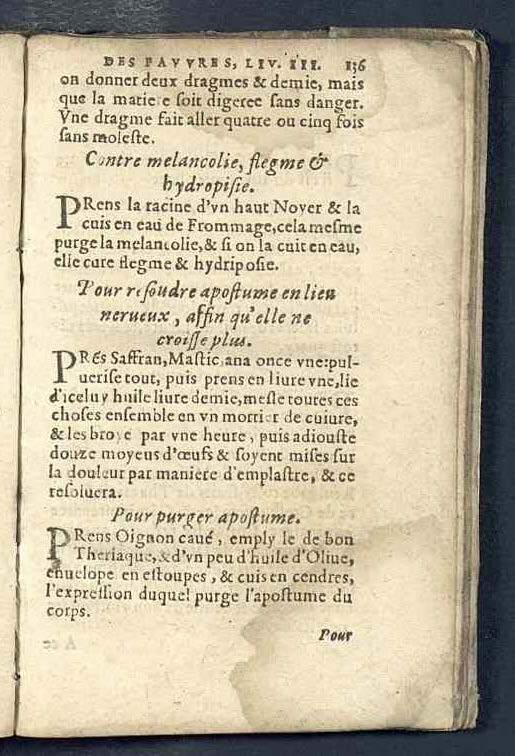 DES PAVVRES, LIV. III. 136
on donner deux dragmes & demie, mais
que la matiere soit digeree sans danger.
Vne dragme fait aller quatre ou cinq fois
sans moleste.
Contre melancolie, flegme &
hydropisie.
PRens la racine d'vn haut Noyer & la
cuis en eau de Frommage, cela mesme
purge la melancolie, & si on la cuit en eau,
elle cure flegme & hydriposie.
Pour resoudre apostume en lieu
nerueux, affin qu'elle ne
croisse plus.
PRés Saffran, Mastic, ana once vne: pul-
uerise tout, puis prens en liure vne, lie
d'iceluy huile liure demie, mesle toutes ces
choses ensemble en vn mortier de cuiure,
& les broye par vne heure, puis adiouste
douze moyeus d'œufs & soyent mises sur
la douleur par maniere d'emplastre, & ce
resoluera.
Pour purger apostume.
PRens Oignon caué, emply le de bon
Theriaque, & d'vn peu d'huile d'Oliue,
enuelope en estoupes, & cuis en cendres,
l'expression duquel purge l'apostume du
corps.
Pour